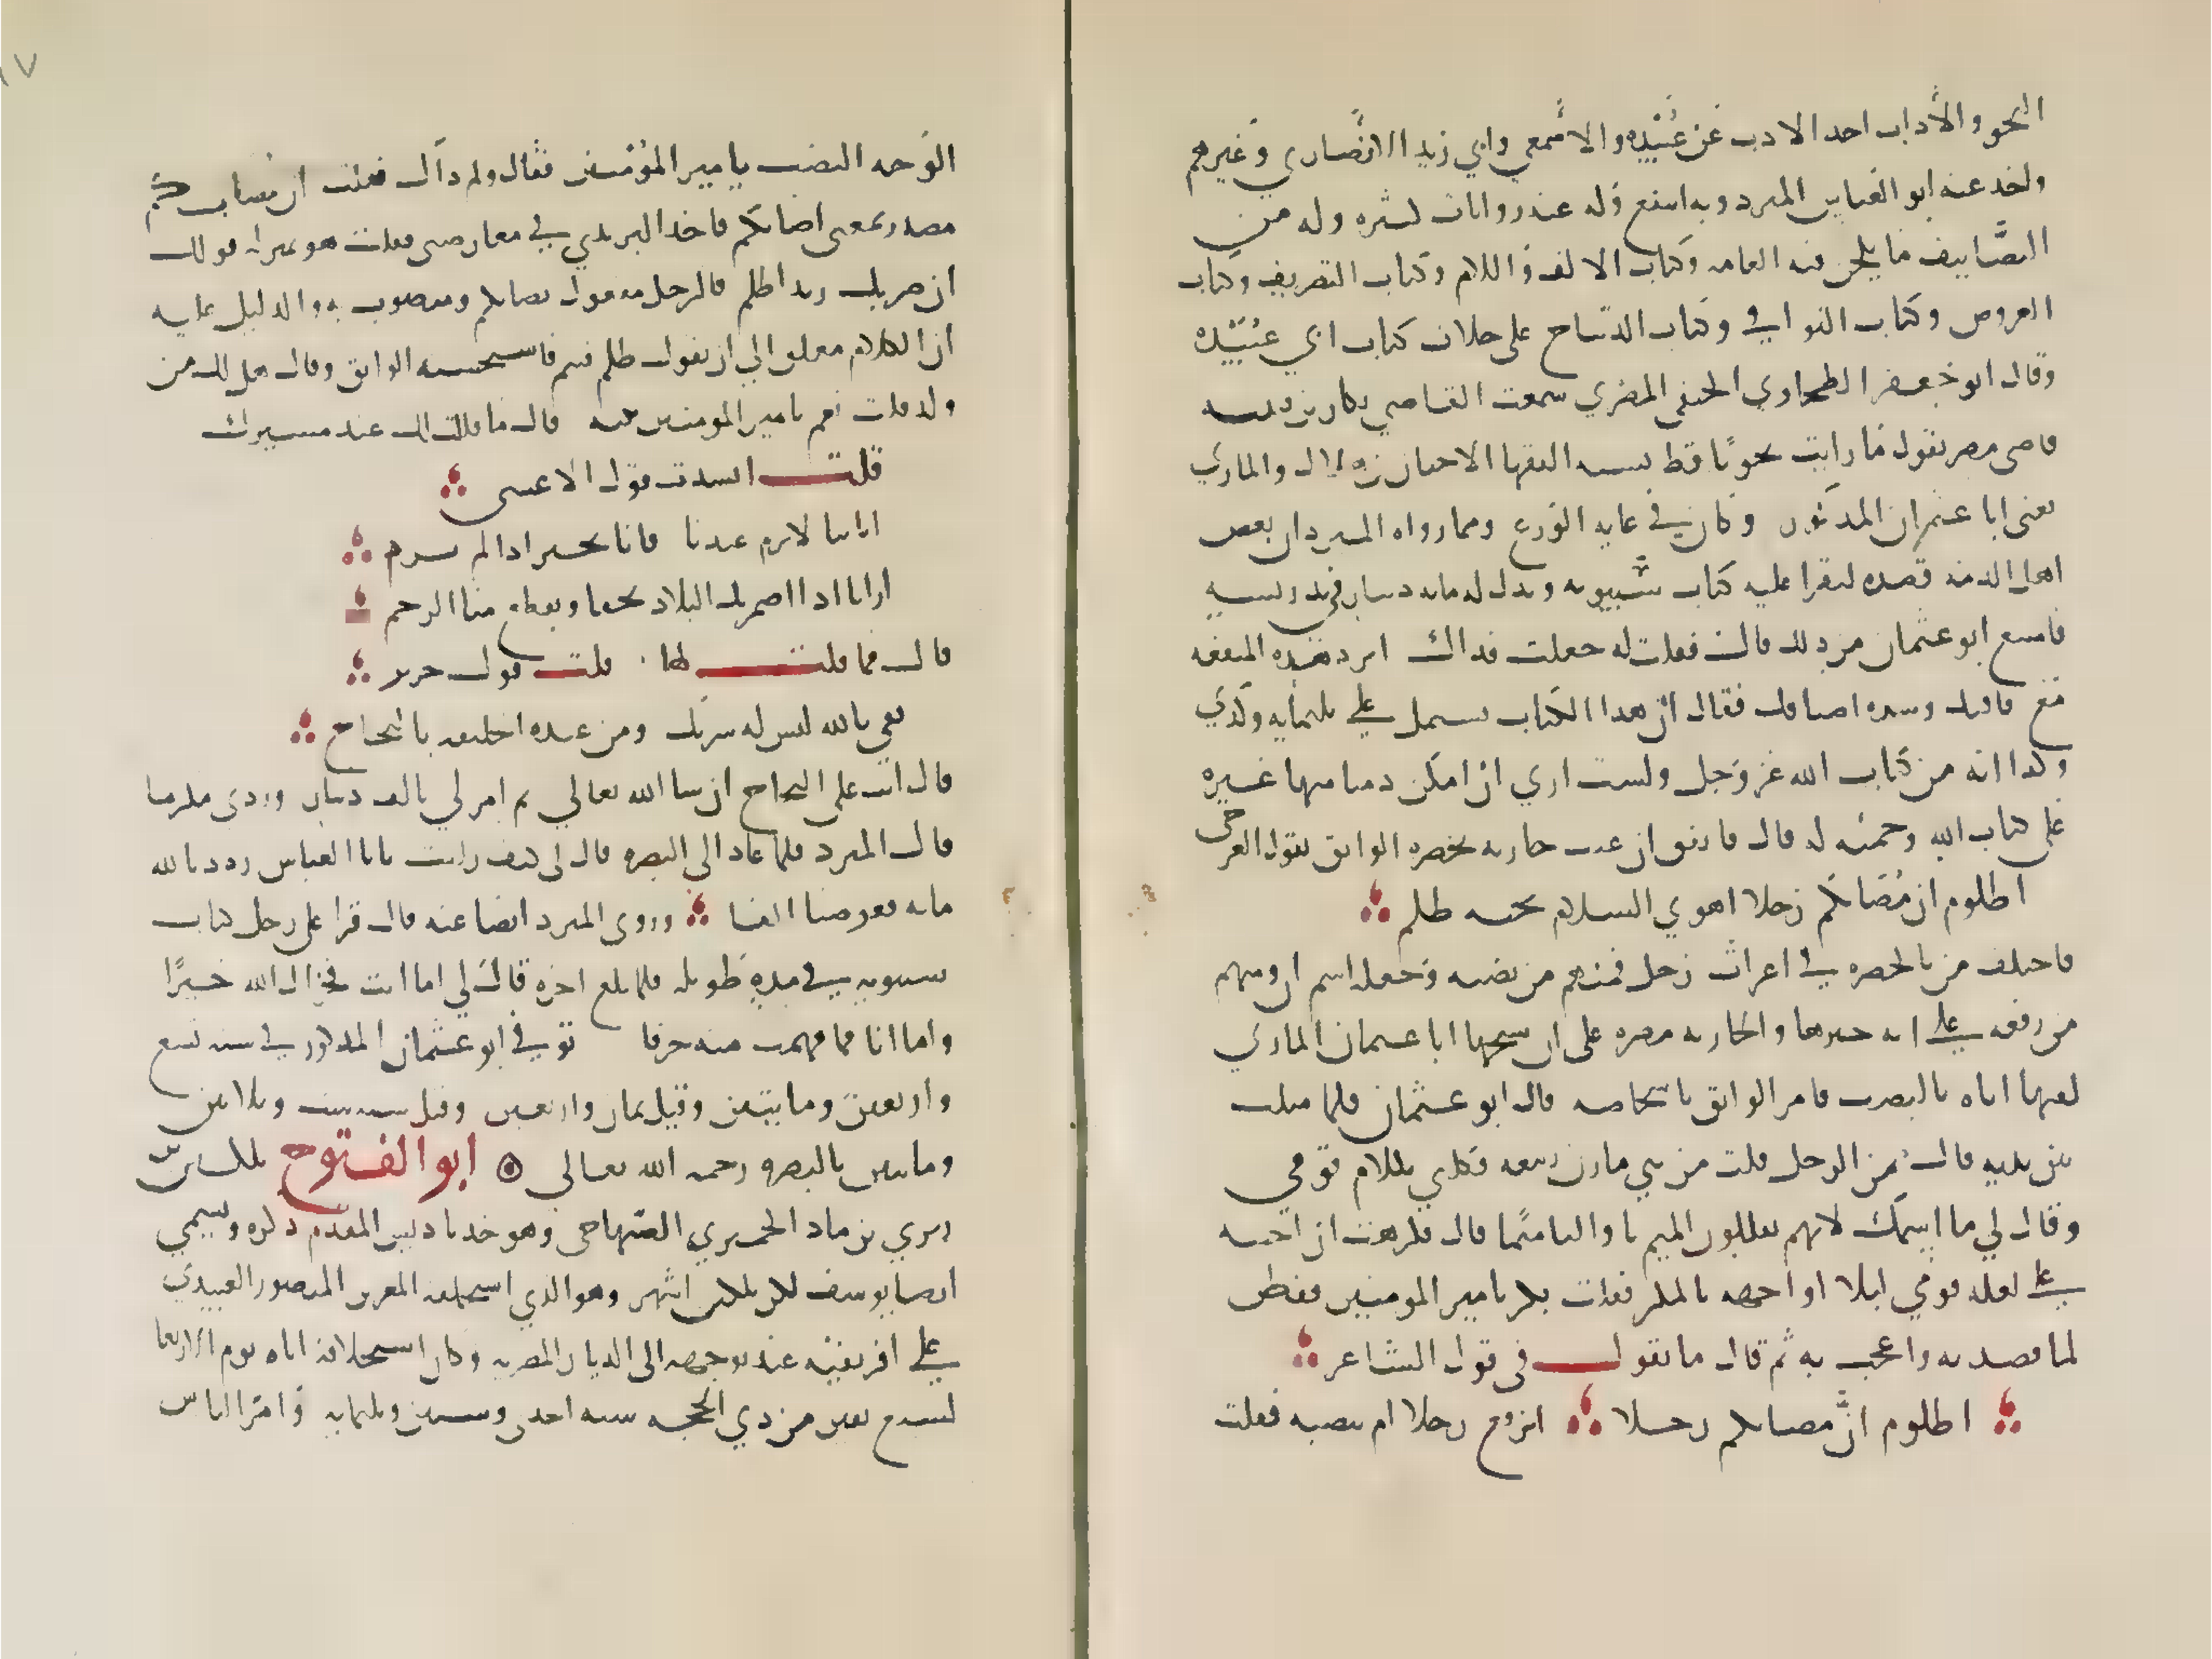 النحو والآداب اخد الادب عن عُبَيْده والاصمعي وابي زيد الانصاري وغيرهم
واخد عنه ابو العباس المبرد وبه انتفع وله عنه روايات كثيره وله من
التصانيف ما يلحن فيه العامه وكتاب الالف واللام وكتاب التصريف وكتاب
العروض وكتاب القوافي وكتاب الديباج على خلاف كتاب ابي عبيده
وقال ابو جعفر الطحاوي الحنفي المصري سمعت القاضي بكار بن قتيبه
قاضي مصر يقول ما رايت نحويًا قط يشبه الفقها الا حيان بن هلال والمازني
يعني ابا عثمان المذكور وكان في غايه الورع ومما رواه المبرد ان بعض
اهل الذمه قصده ليقرا عليه كتاب سيبويه وبدل له مايه دينار في تدريسه
فامتنع ابو عثمان من ذلك قال فقلت له جعلت فداك اترد هذه المنفعه
مع فاقتك وشده اضاقتك فقال ان هذا الكتاب يشتمل على ثلثمايه وكذي
وكذا ايه من كتاب الله عز وجل ولست اري ان امكن دميا منها غيره
على كتاب الله وحميه له قال فاتفق ان غنت جاريه بحضره الواثق بقول العرجي
اظلوم ان مُصَابكم رجلا اهدي السلام تحيه ظلم
فاختلف من بالحضره في اعراب رجل فمنهم من نصبه وجعله اسم ان ومنهم
من رفعه على انه خبرها والجاريه مصره على ان شيخها ابا عثمان المازني
لقنها اياه بالنصب فامر الواثق باشخاصه قال ابو عثمان فلما مثلت
بين يديه قال ممن الرجل قلت من بني مازن ربيعه فكلمني بكلام قومي
وقال لي ما اسمك لانهم يقلبون الميم با والبا ميمًا قال فكرهت ان اجيبه
على لغه قومي ليلا اواجهه بالمكر فقلت بكر يا مير المومنين ففطن
لما قصدته واعجب به ثم قال ما تقول في قول الشاعر
اظلوم انّ مصابكم رجلا اترفع رجلا ام تنصبه فقلت
الوجه النصب يا مير المؤمنين فقال ولم داك فقلت ان مصابكم
مصدر بمعنى اصابتكم فاخد اليزيدي في معارضتي فقلت هو بمنزله قولك
ان ضربك زيدا ظلم فالرجل مفعول مصابكم ومنصوب به والدليل عليه
ان الكلام معلق الي ان يقول ظلم فيتم فاستحسنه الواثق وقال هل لك من
ولد قلت نعم يا مير المومنين بنيه قال ما قالت لك عند مسيرك
قلت انشدت قول الاعشى
ايا ابتا لا ترم عندنا فانا بخير ادا لم ترم
ارانا ادا اضمرتك البلاد نجفا ويقطع منا الرحم
قال فما قلت لها قلت قول جرير
ثقي بالله ليس له شريك ومن عنده الخليفه بالنجاح
قال انت على النجاح ان شا الله تعالي ثم امر لي بالف دينار وردني مكرما
قال المبرد فلما عاد الى البصره قال لي كيف رايت يا ابا العباس رددنا لله
مايه فعوضنا الفا وروى المبرد ايضا عنه قال قرا علي رجل كتاب
سيبويه في مدة طويله فلما بلغ اخره قال لي اما انت فجزاك الله خيرًا
واما انا فما فهمت منه حرفا توفي ابو عثمان المذكور في سنه تسع
واربعين ومايتين وقيل ثمان واربعين وقيل سنه ست وثلاثين
ومايتين بالبصره رحمه الله تعالي ابو الفتوح بلكين بن
زيري بن مناد الحميري الصنهاجي وهو جد باديس المقدم ذكره ويسمي
ايضا يوسف لكن بلكين اشهر وهو الذي استخلفه المعز بن المنصور العبيدي
على افريقيه عند توجهه الى الديار المصريه وكان استخلافه اياه يوم الاربعا
لسبع بقين من ذي الحجه سنه احدى وستين وثلثمايه وامر الناس